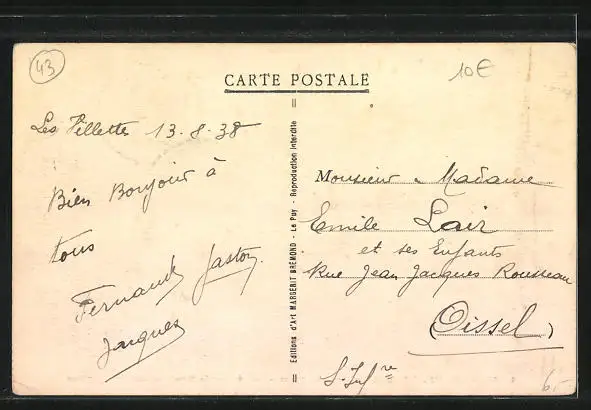 43
10€
CARTE POSTALE
Les Villettes 13-8-38
Bien Bonjour à
tous
Fernand Gaston
Jacques
Editions d'Art MARGERIT BRÉMOND - Le Puy - Reproduction interdite
Monsieur & Madame
Emile Lair
et ses Enfants
Rue Jean Jacques Rousseau
(Oissel)
S-Infre
6,-